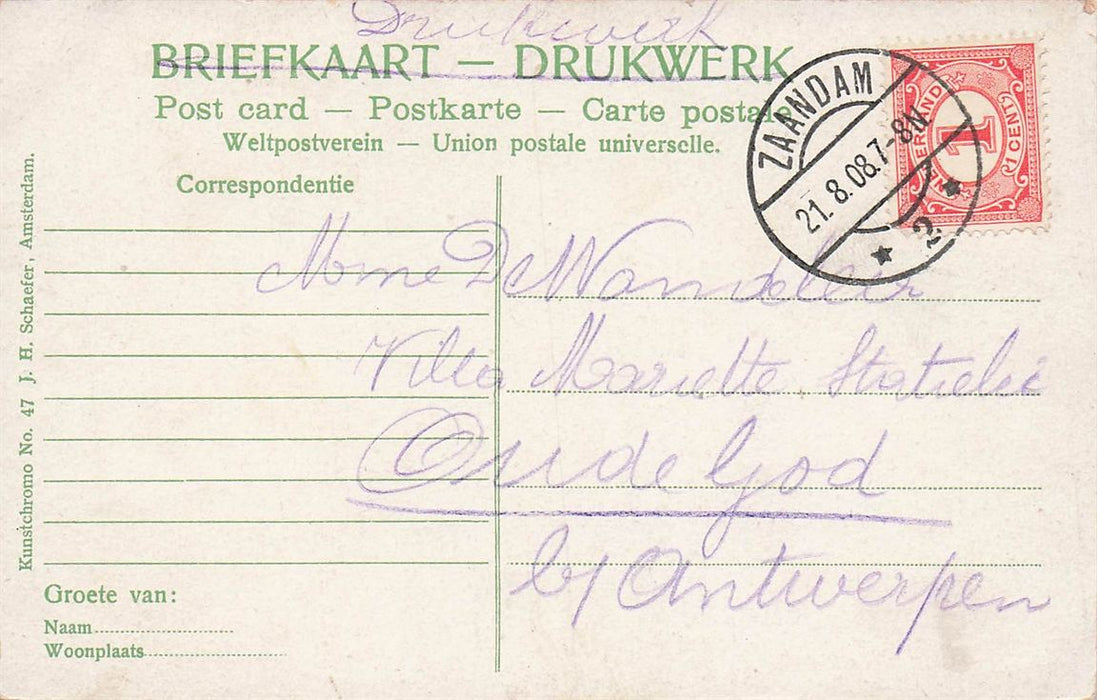 Drukwerk
BRIEFKAART — DRUKWERK
Post card — Postkarte — Carte postale
Weltpostverein — Union postale universelle.
Correspondentie
ZAANDAM
21. 8. 08. 7-8V
2
NEDERLAND
1
1 CENT
Mme De Wandeleir
Villa Mariette
Oude God
by Antwerpen
Groete van:
Naam
Woonplaats
Kunstchromo No. 47 J. H. Schaefer, Amsterdam.